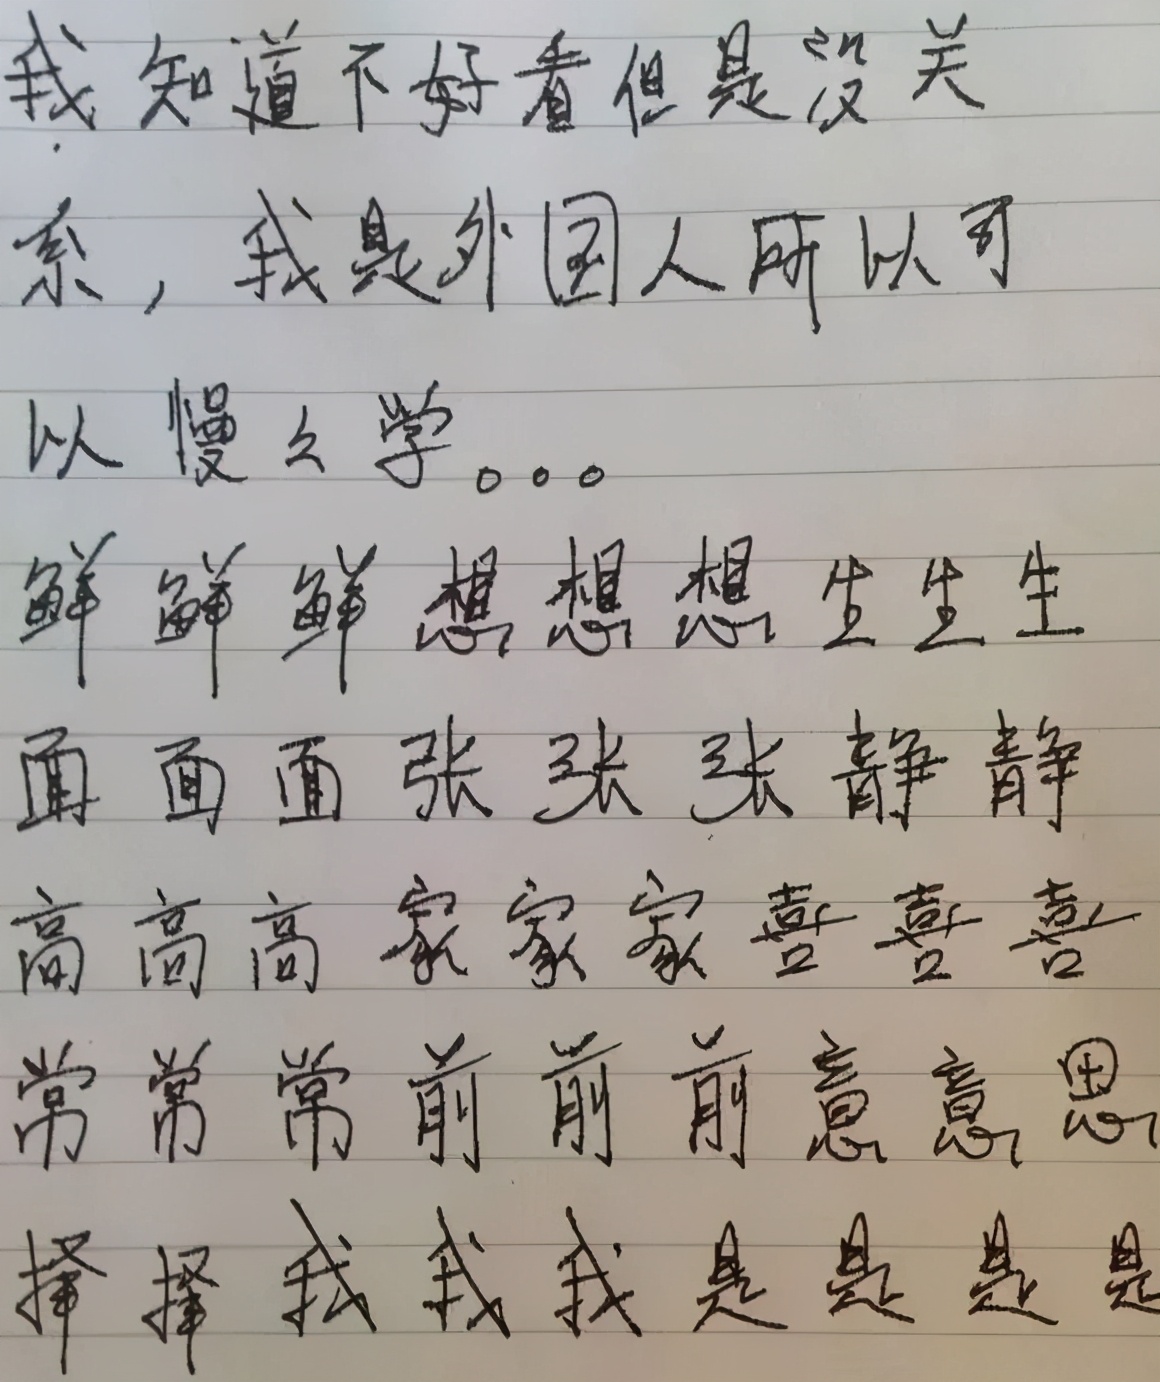 我知道不好看但是没关
系，我是外国人所以可
以慢々学。。。
鲜鲜鲜想想想生生生
面面面张张张静静
高高高家家家喜喜喜
常常常前前前意意思
择择我我我是是是是